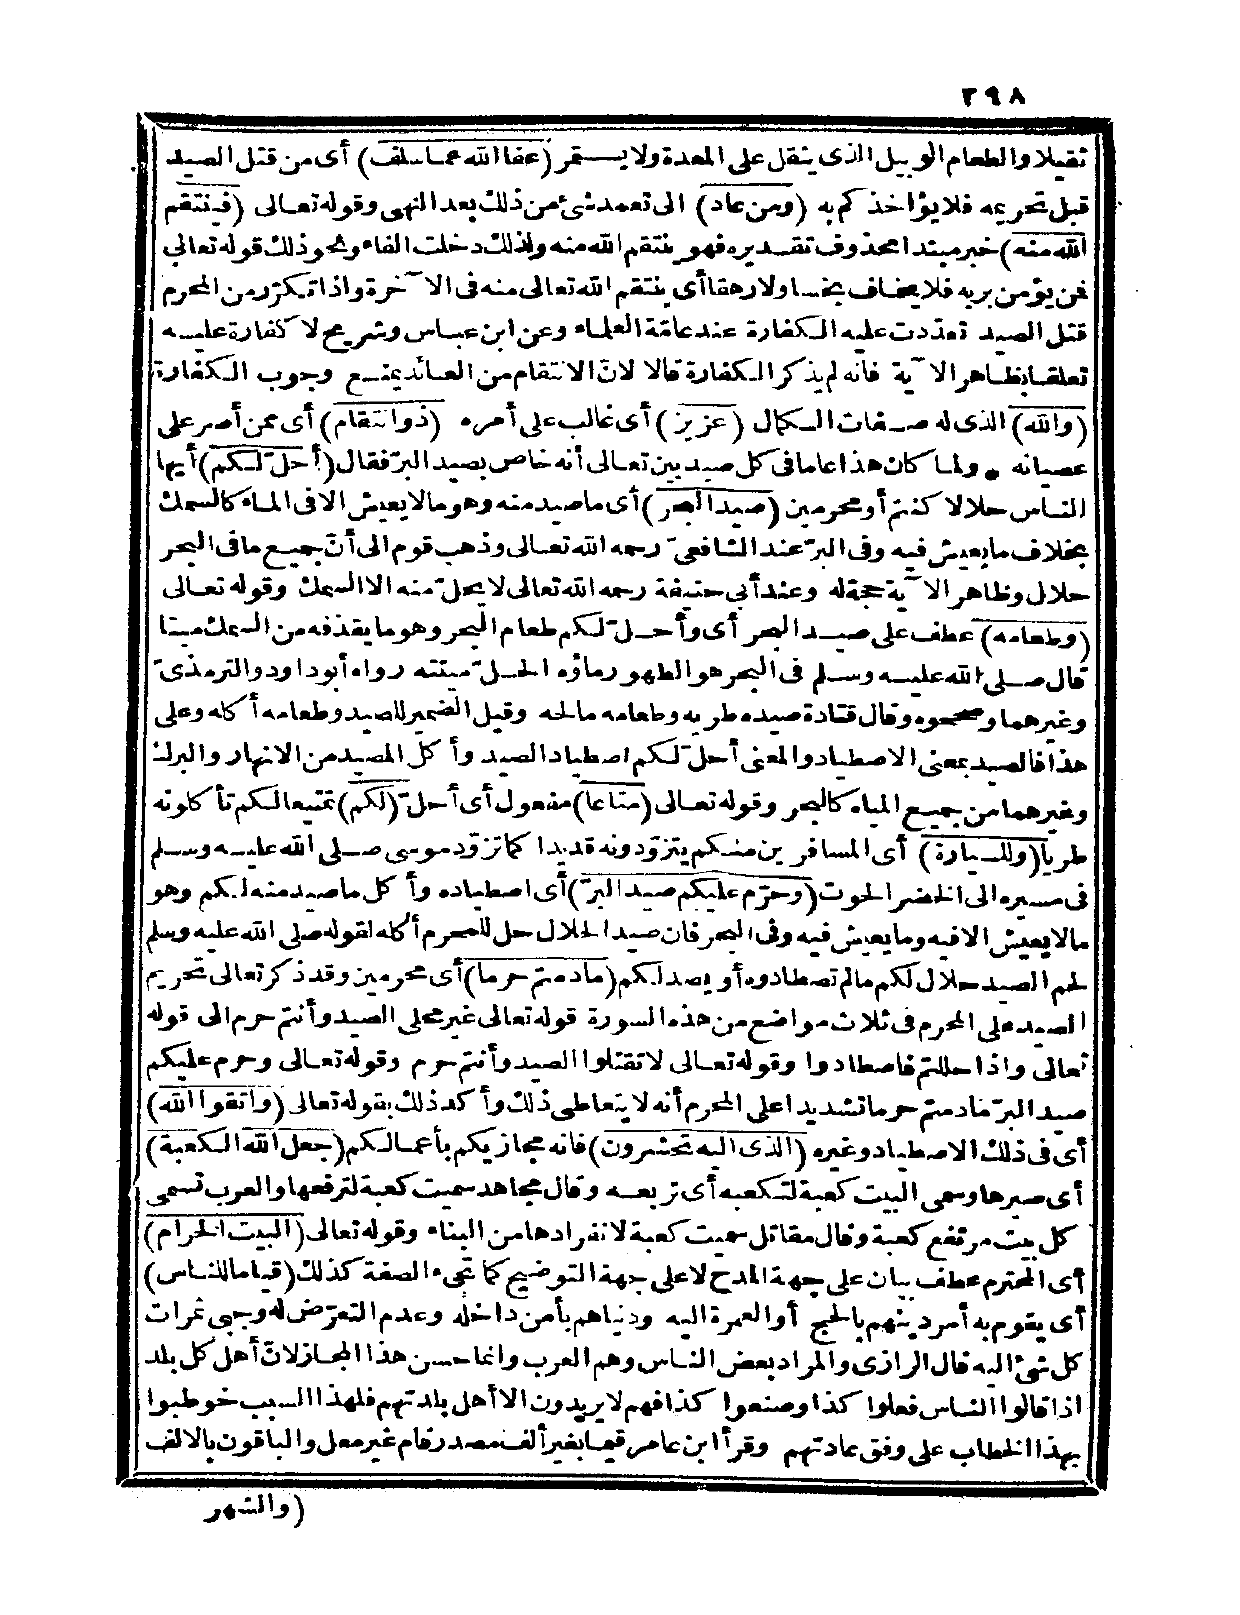 ٣٩٨
ثقيلا والطعام الوبيل الذى يثقل على المعدة ولا يستمر (عفا الله عما سلف) أى من قتل الصيد
قبل تحريمه فلا يؤاخذكم به (ومن عاد) الى تعمد شئ من ذلك بعد النهى وقوله تعالى (فينتقم
الله منه) خبر مبتدا محذوف تقديره فهو ينتقم الله منه ولذلك دخلت الفاء ونحو ذلك قوله تعالى
فمن يؤمن بربه فلا يخاف بخسا ولا رهقا أى ينتقم الله تعالى منه فى الآخرة واذا تكرّر من المحرم
قتل الصيد تعدّدت عليه الكفارة عند عامّة العلماء وعن ابن عباس وشريح لا كفارة عليه
تعلقا بظاهر الآية فانه لم يذكر الكفارة قالا لانّ الانتقام من العائد يمنع وجوب الكفارة
(والله) الذى له صفات الكمال (عزيز) أى غالب على أمره (ذوانتقام) أى ممن أصر على
عصيانه * ولما كان هذا عاما فى كل صيد بين تعالى أنه خاص بصيد البرّ فقال (أحلّ لكم) أيها
الناس حلالا كنتم أو محرمين (صيد البحر) أى ما صيد منه وهو ما لا يعيش الا فى الماء كالسمك
بخلاف ما يعيش فيه وفى البرّ عند الشافعىّ رحمه الله تعالى وذهب قوم الى أنّ جميع ما فى البحر
حلال وظاهر الآية حجة له وعند أبى حنيفة رحمه الله تعالى لا يحلّ منه الا السمك وقوله تعالى
(وطعامه) عطف على صيد البحر أى وأحلّ لكم طعام البحر وهو ما يقذفه من السمك ميتا
قال صلى الله عليه وسلم فى البحر هو الطهور ماؤه الحلّ ميتته رواه أبو داود والترمذىّ
وغيرهما وصححوه وقال قتادة صيده طريه وطعامه مالحه وقيل الضمير للصيد وطعامه أكله وعلى
هذا فالصيد بمعنى الاصطياد والمعنى أحلّ لكم اصطياد الصيد وأكل المصيد من الانهار والبرك
وغيرهما من جميع المياه كالبحر وقوله تعالى (متاعا) مفعول أى أحلّ (لكم) تمتيعا لكم تأكلونه
طريا (وللسيارة) أى المسافرين منكم يتزوّدونه قديدا كما تزوّد موسى صلى الله عليه وسلم
فى مسيره الى الخضر الحوت (وحرّم عليكم صيد البرّ) أى اصطياده وأكل ما صيد منه لكم وهو
ما لا يعيش الا فيه وما يعيش فيه وفى البحر فان صيد الحلال حل للمحرم أكله لقوله صلى الله عليه وسلم
لحم الصيد حلال لكم ما لم تصطادوه أو يصد لكم (ما دمتم حرما) أى محرمين وقد ذكر تعالى تحريم
الصيد على المحرم فى ثلاث مواضع من هذه السورة قوله تعالى غير محلى الصيد وأنتم حرم الى قوله
تعالى واذا حللتم فاصطادوا وقوله تعالى لا تقتلوا الصيد وأنتم حرم وقوله تعالى وحرم عليكم
صيد البرّ ما دمتم حرما تشديدا على المحرم أنه لا يتعاطى ذلك وأكد ذلك بقوله تعالى (واتقوا الله)
أى فى ذلك الاصطياد وغيره (الذى اليه تحشرون) فانه مجازيكم بأعمالكم (جعل الله الكعبة)
أى صيرها وسمى البيت كعبة لتكعبه أى تربعه وقال مجاهد سميت كعبة لترفعها والعرب تسمى
كل بيت مرتفع كعبة وقال مقاتل سميت كعبة لانفرادها من البناء وقوله تعالى (البيت الحرام)
أى المحترم عطف بيان على جهة المدح لا على جهة التوضيح كما تجىء الصفة كذلك (قياما للناس)
أى يقوم به أمر دينهم بالحج أو العمرة اليه ودنياهم بأمن داخله وعدم التعرّض له وجبى ثمرات
كل شئ اليه قال الرازى والمراد بعض الناس وهم العرب وانما حسن هذا المجاز لانّ أهل كل بلد
اذا قالوا الناس فعلوا كذا وصنعوا كذا فهم لا يريدون الا أهل بلدتهم فلهذا السبب خوطبوا
بهذا الخطاب على وفق عادتهم وقرأ ابن عامر قيما بغير ألف مصدر قام غير معل والباقون بالالف
(والشهر